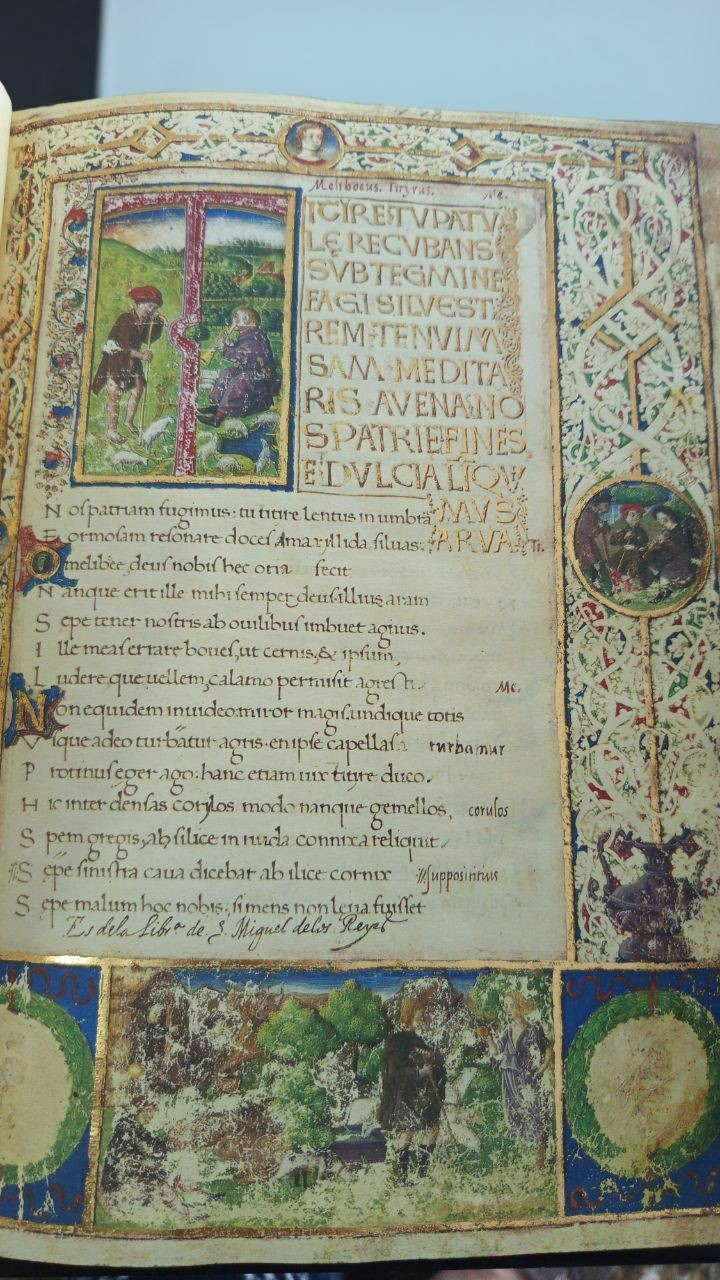 Meliboeus. Tityrus. Me.
TITYRE·TV PATV
LĘ RECVBANS
SVB TEGMINE
FAGI SILVEST
REM·TENVI MV
SAM·MEDITA
RIS AVENA·NO
S PATRIE FINES
E· DVLCIA LIQV
MVS
ARVA Ti.
Nos patriam fugimus: tu titire lentus in umbra
Formosam resonare doces Amaryllida siluas.
O melibee, deus nobis hec otia fecit
Nanque erit ille mihi semper deus illius aram
Sepe tener nostris ab ouilibus imbuet agnus.
Ille meas errare boues, ut cernis, & ipsum,
Ludere que uellem, calamo permisit agresti. Me.
Non equidem inuideo: miror magis. undique totis
Vique adeo turbatur agris. en ipse capellas turbamur
Protinus eger ago: hanc etiam uix tityre duco.
Hic inter densas corylos modo nanque gemellos, corulos
Spem gregis, ah silice in nuda connixa reliquit.
Sępe sinistra caua dicebat ab ilice cornix suppositius
Sępe malum hoc nobis, si mens non leua fuisset
Es de la Libra. de S. Miguel de los Reyes